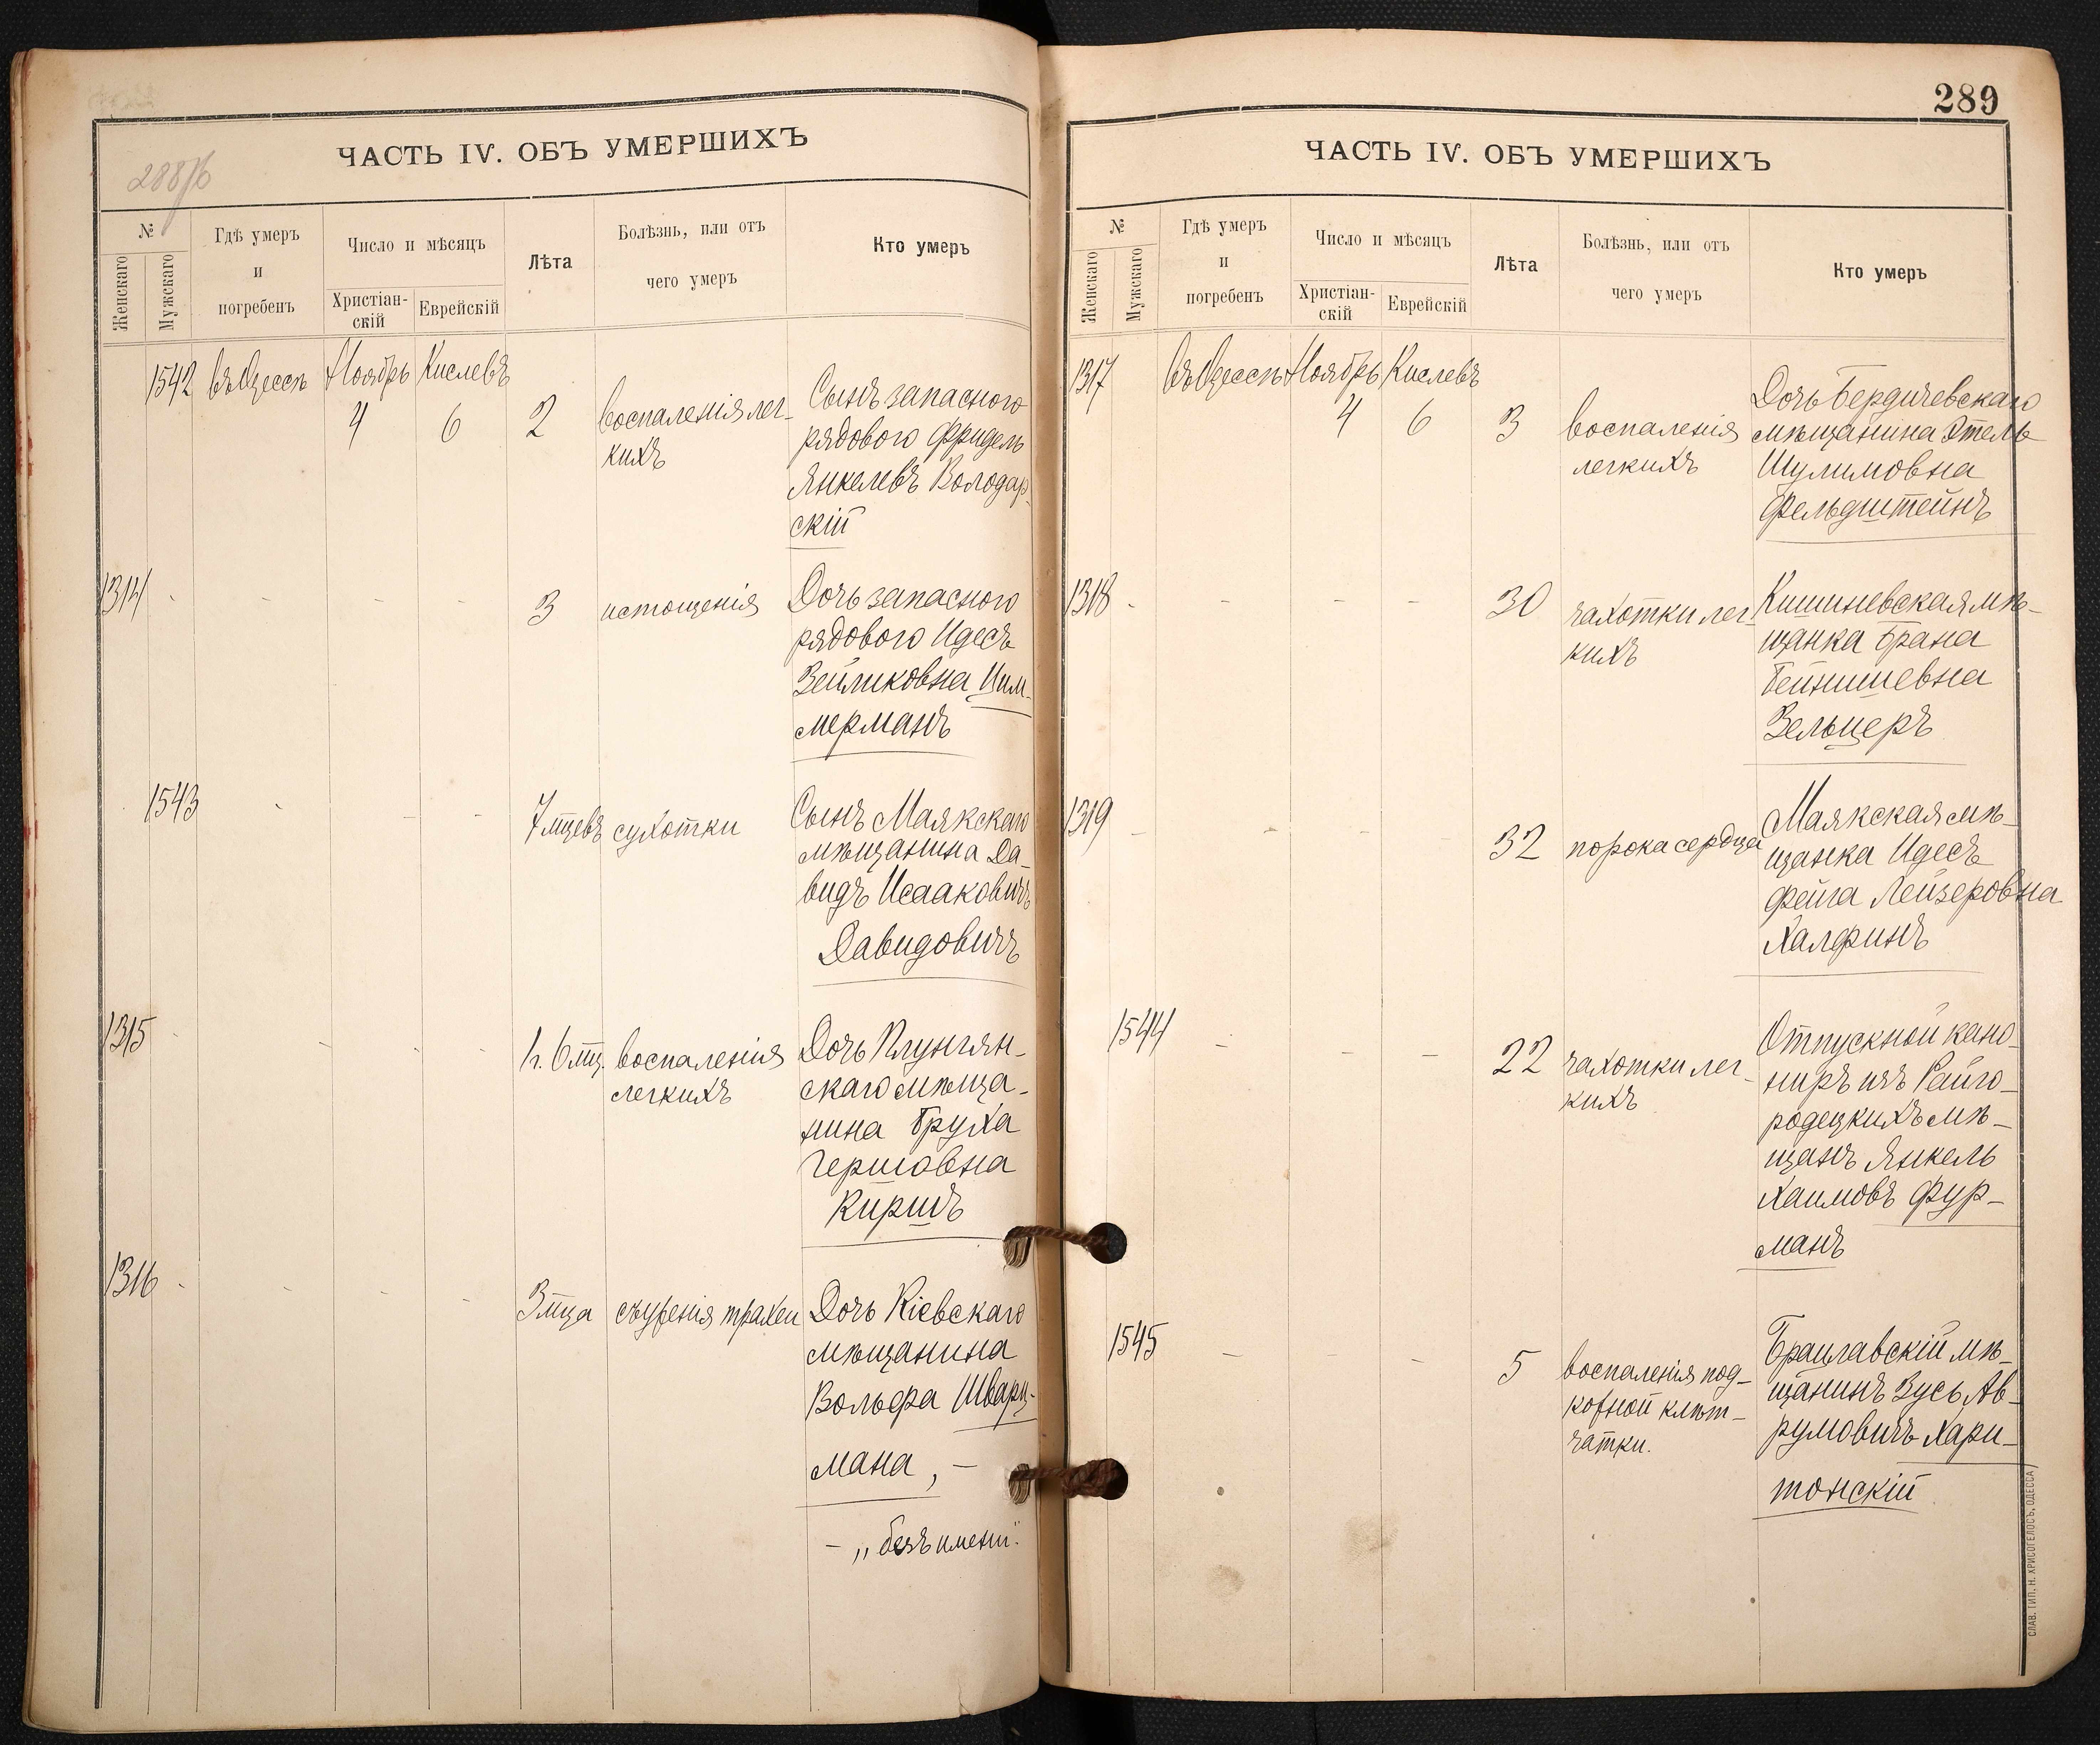 288/б
ЧАСТЬ IV. ОБЪ УМЕРШИХЪ
№
Женскаго
Мужскаго
Гдѣ умеръ
и
погребенъ
Число и мѣсяцъ
Христіан-
скій
Еврейскій
Лѣта
Болѣзнь, или отъ
чего умеръ
Кто умеръ
1542 въ Одессѣ Ноябрь Кислевъ
4 6 2
воспаленія лег-
кихъ
Сынъ запасного
рядового Фридель
Янкелевъ Володар-
скій
1314 - - - -
3 истощенія
Дочь запасного
рядового Идесъ
Зейликовна Цим-
мерманъ
1543 - - -
7 мцевъ сухотки
Сынъ Маякскаго
мѣщанина Да-
видъ Исааковичъ
Давидовичъ
1315 - - - -
1 г. 6 мц. воспаленія
легкихъ
Дочь Плунгян-
скаго мѣща-
нина Бруха
Гершовна
Киршъ
1316 - - - -
3 мца съуженія трахеи
Дочь Кіевскаго
мѣщанина
Вольфа Шварц-
мана, -
- „безъ имени".
289
ЧАСТЬ IV. ОБЪ УМЕРШИХЪ
№
Женскаго
Мужскаго
Гдѣ умеръ
и
погребенъ
Число и мѣсяцъ
Христіан-
скій
Еврейскій
Лѣта
Болѣзнь, или отъ
чего умеръ
Кто умеръ
1317 въ Одессѣ Ноябрь Кислевъ
4 6 3
воспаленія
легкихъ
Дочь Бердичевскаго
мѣщанина Этель
Шулимовна
Фельдштейнъ
1318 - - - -
30 чахотки лег-
кихъ
Кишиневская мѣ-
щанка Брана
Бейнишевна
Зельцеръ
1319 - - - -
32 порока сердца
Маякская мѣ-
щанка Идесъ
Фейга Лейзеровна
Халфинъ
1544 - - -
22 чахотки лег-
кихъ
Отпускной кано-
ниръ изъ Райго-
родецкихъ мѣ-
щанъ Янкель
Хаимовъ Фур-
манъ
1545 - - -
5 воспаленія под-
кожной клѣт-
чатки.
Брацлавскій мѣ-
щанинъ Зусь Ав-
румовичъ Хари-
тонскій
СЛАВ. ТИП. Н. ХРИСОГЕЛОСЪ, ОДЕССА